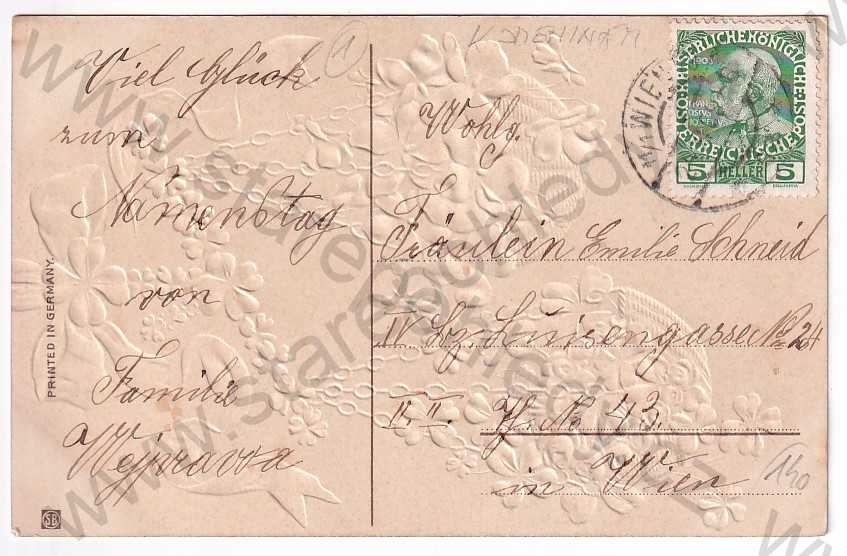 Viel Glück
zum
Namenstag
von
Familie
Wejprawa
PRINTED IN GERMANY.
SB
1
Wohlg.
Fräulein Emilie Schneid
IV. Bz. Luisengasse No 24
II. St. T. No 43.
in Wien
140
KAISERLICHE KÖNIGLICHE
ÖSTERREICHISCHE POST
1908
FRANZ
JOSEF I
5 HELLER 5
WIEN
www.starepohledy.cz